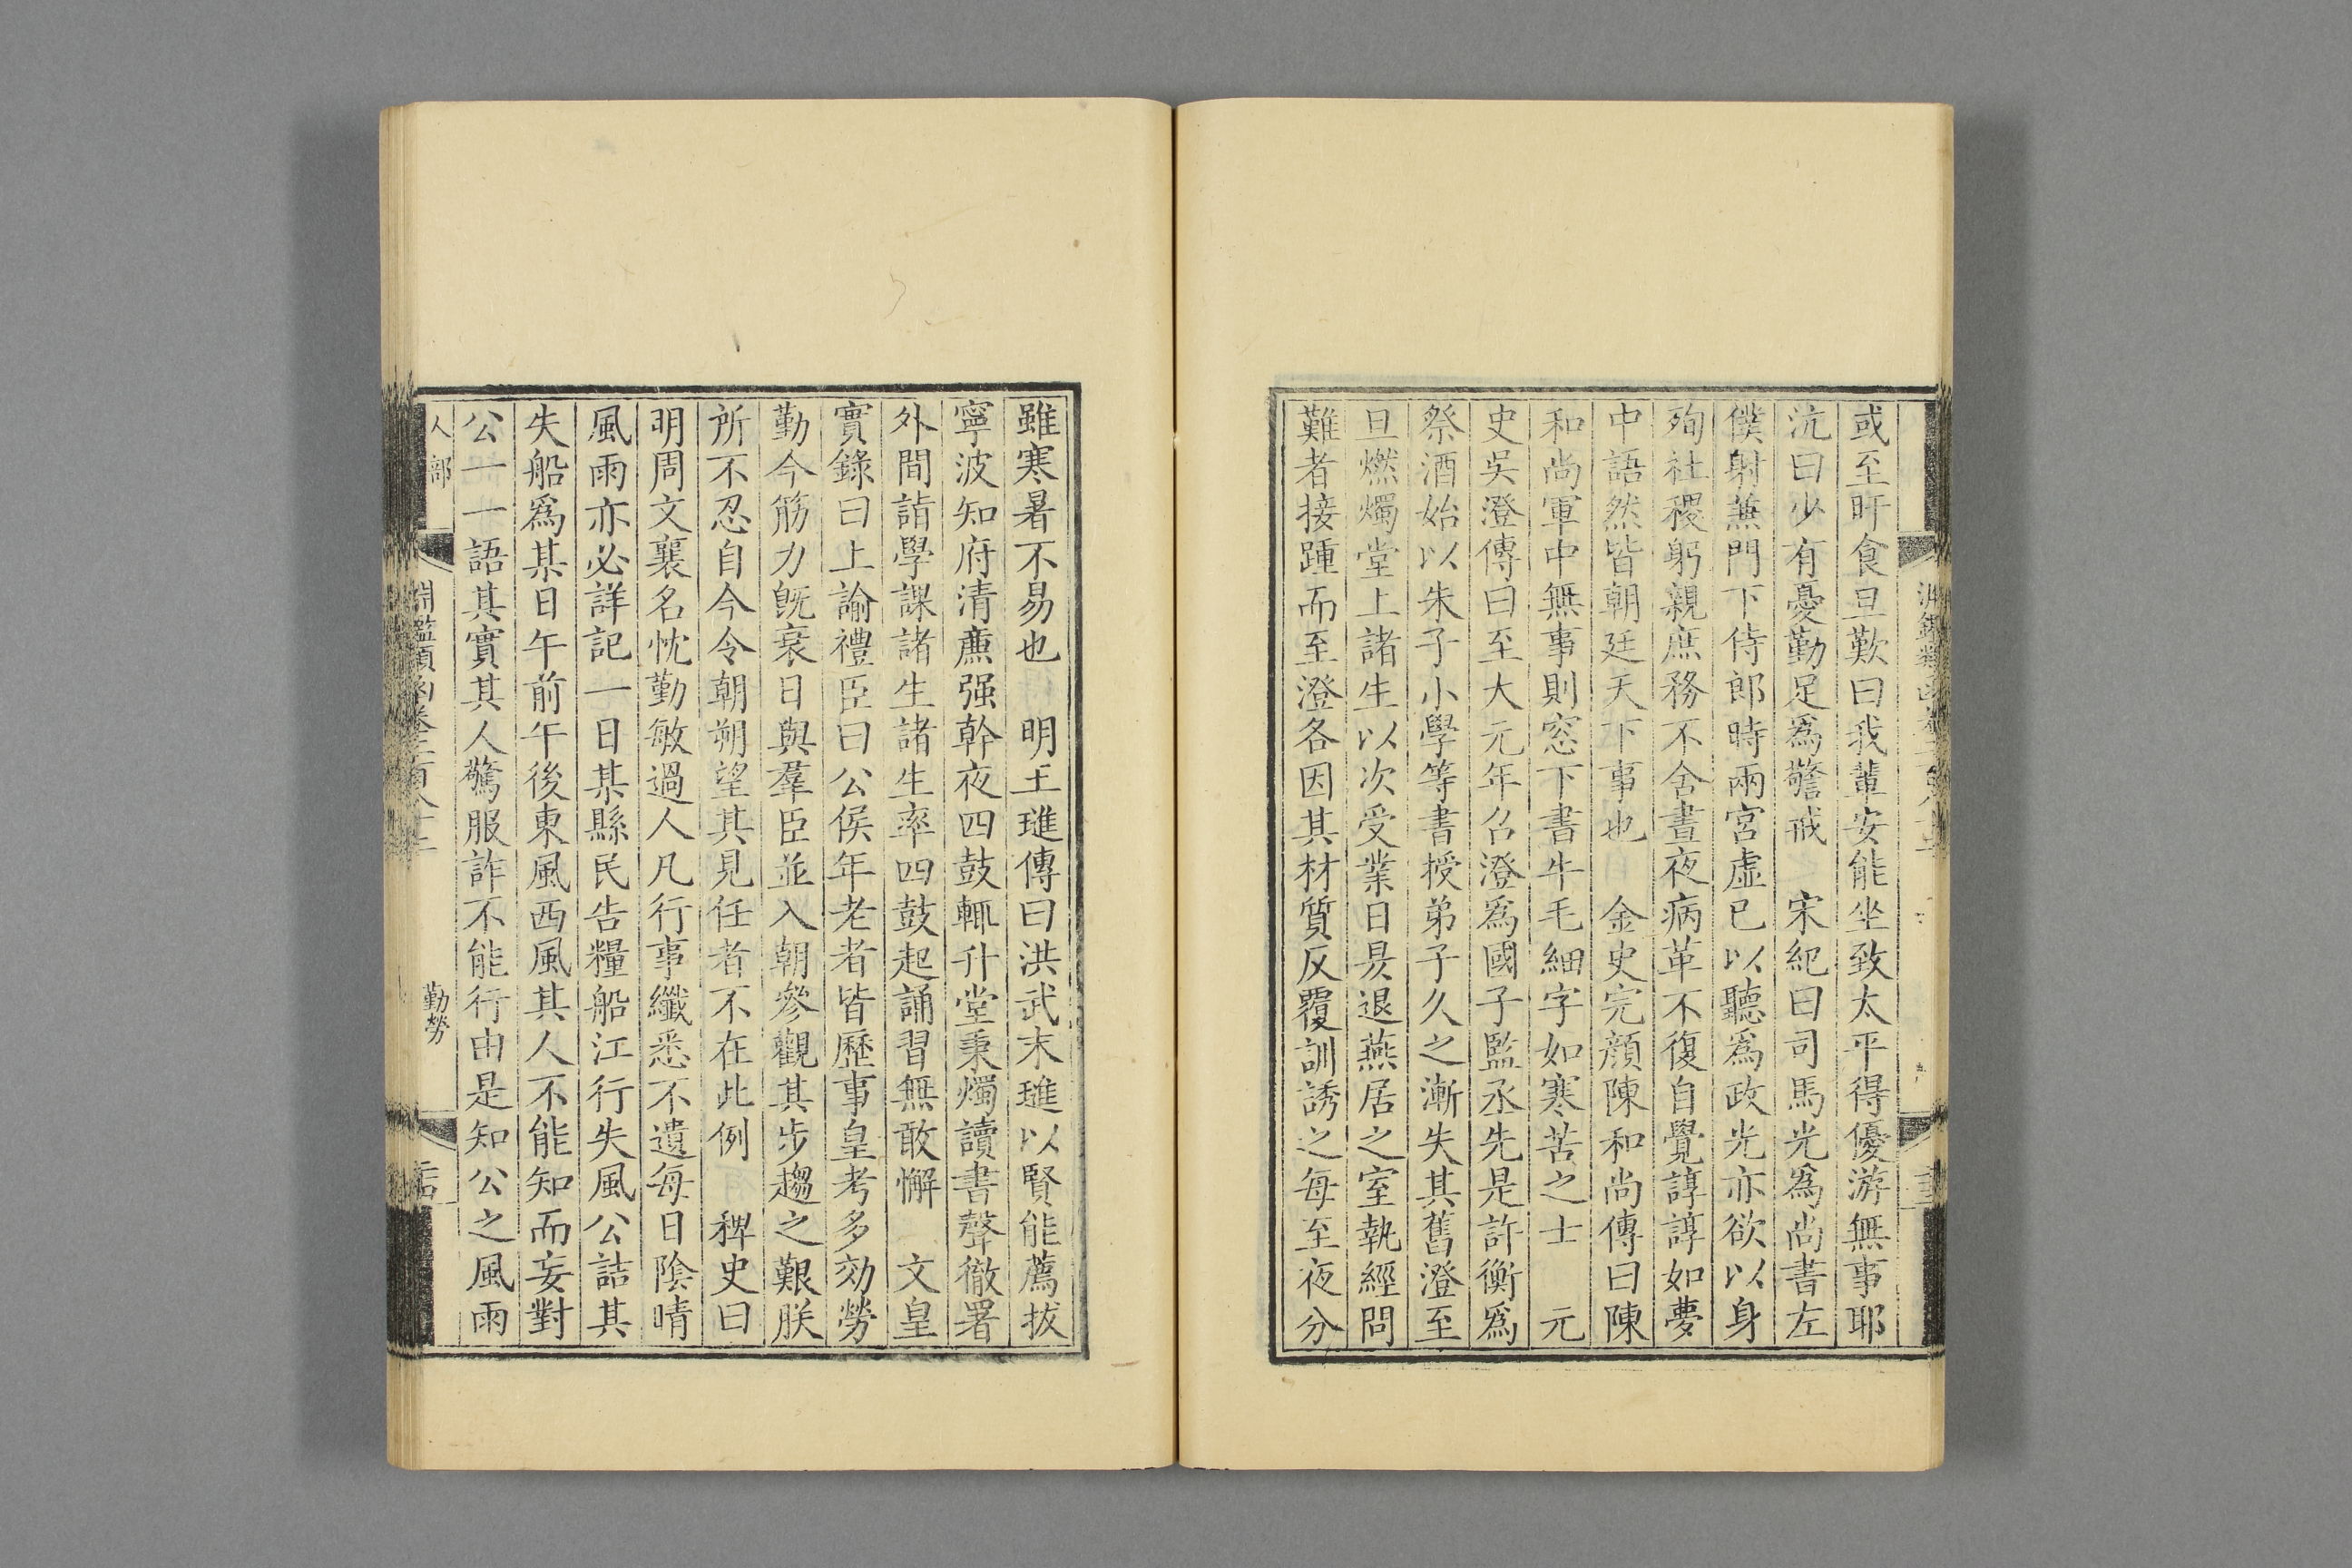 或至旰食旦歎曰我輩安能坐致太平得優游無事耶
沆曰少有憂勤足爲警戒 宋紀曰司馬光爲尚書左
僕射兼門下侍郎時兩宮虛已以聽爲政光亦欲以身
殉社稷躬親庶務不舍晝夜病革不復自覺諄諄如夢
中語然皆朝廷天下事也 金史完顔陳和尚傳曰陳
和尚軍中無事則窓下書牛毛細字如寒苦之士 元
史吳澄傳曰至大元年召澄爲國子監丞先是許衡爲
祭酒始以朱子小學等書授弟子久之漸失其舊澄至
旦燃燭堂上諸生以次受業日昃退燕居之室執經問
難者接踵而至澄各因其材質反覆訓誘之每至夜分
雖寒暑不易也 明王璡傳曰洪武末璡以賢能薦拔
寧波知府清廉强幹夜四鼓輒升堂秉燭讀書聲徹署
外間詣學課諸生諸生率四鼓起誦習無敢懈 文皇
實錄曰上諭禮臣曰公侯年老者皆歷事皇考多効勞
勤今筋力旣衰日與羣臣並入朝參觀其步趨之艱朕
所不忍自今令朝朔望其見任者不在此例 稗史曰
明周文襄名忱勤敏過人凡行事纖悉不遺每日陰晴
風雨亦必詳記一日某縣民告糧船江行失風公詰其
失船爲某日午前午後東風西風其人不能知而妄對
公一一語其實其人驚服詐不能行由是知公之風雨
人部
淵鑑類函卷二百八十三
勤勞